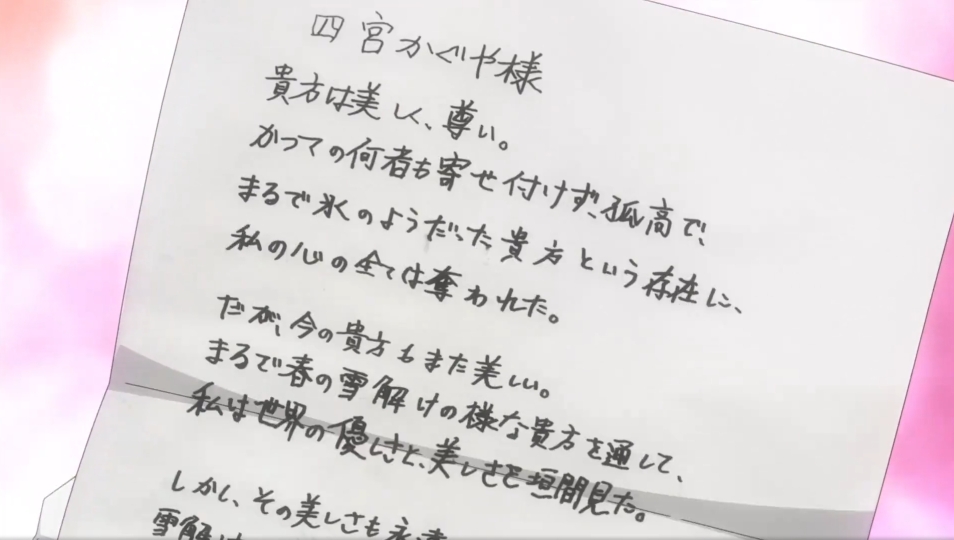 四宮かぐや様
貴方は美しく、尊い。
かつての何者も寄せ付けず、孤高で、
まるで氷のようだった貴方という存在に、
私の心の全ては奪われた。
だが、今の貴方もまた美しい。
まるで春の雪解けの様な貴方を通して、
私は世界の優しさと、美しさを垣間見た。
しかし、その美しさも永遠
雪解け